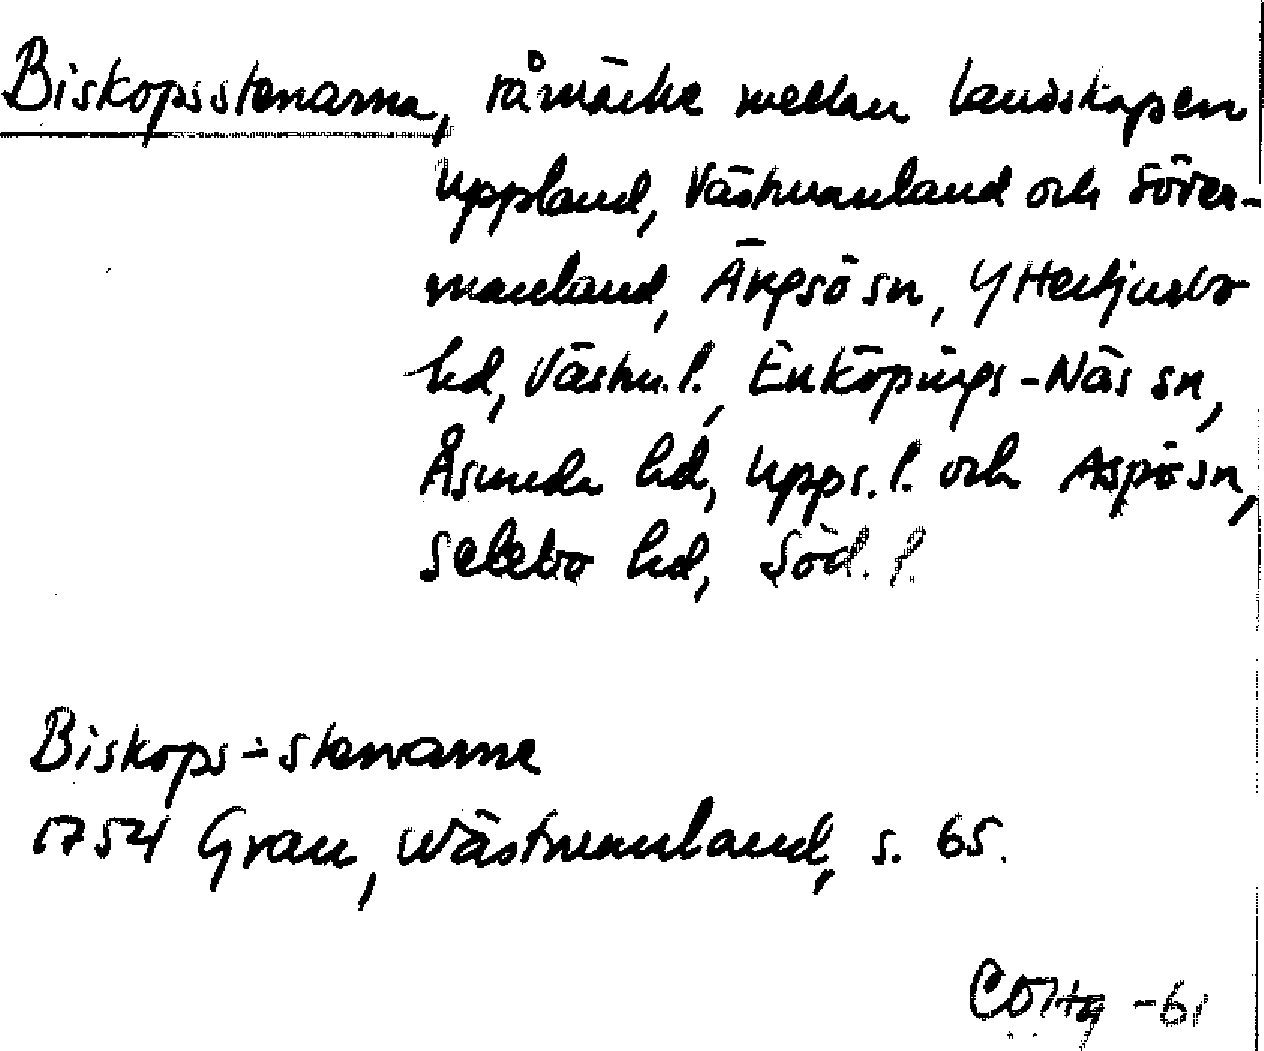 Biskopsstenarna, råmärke mellan landskapen
Uppland, Västmanland och Söder-
manland, Ängsö sn, Yttertjurbo
hd, Västm. l., Enköpings-Näs sn,
Åsunda hd, Upps. l. och Aspö sn,
Selebo hd, Söd. l.
Biskops-stenarne
1754 Grau, Wästmanland, s. 65.
-61